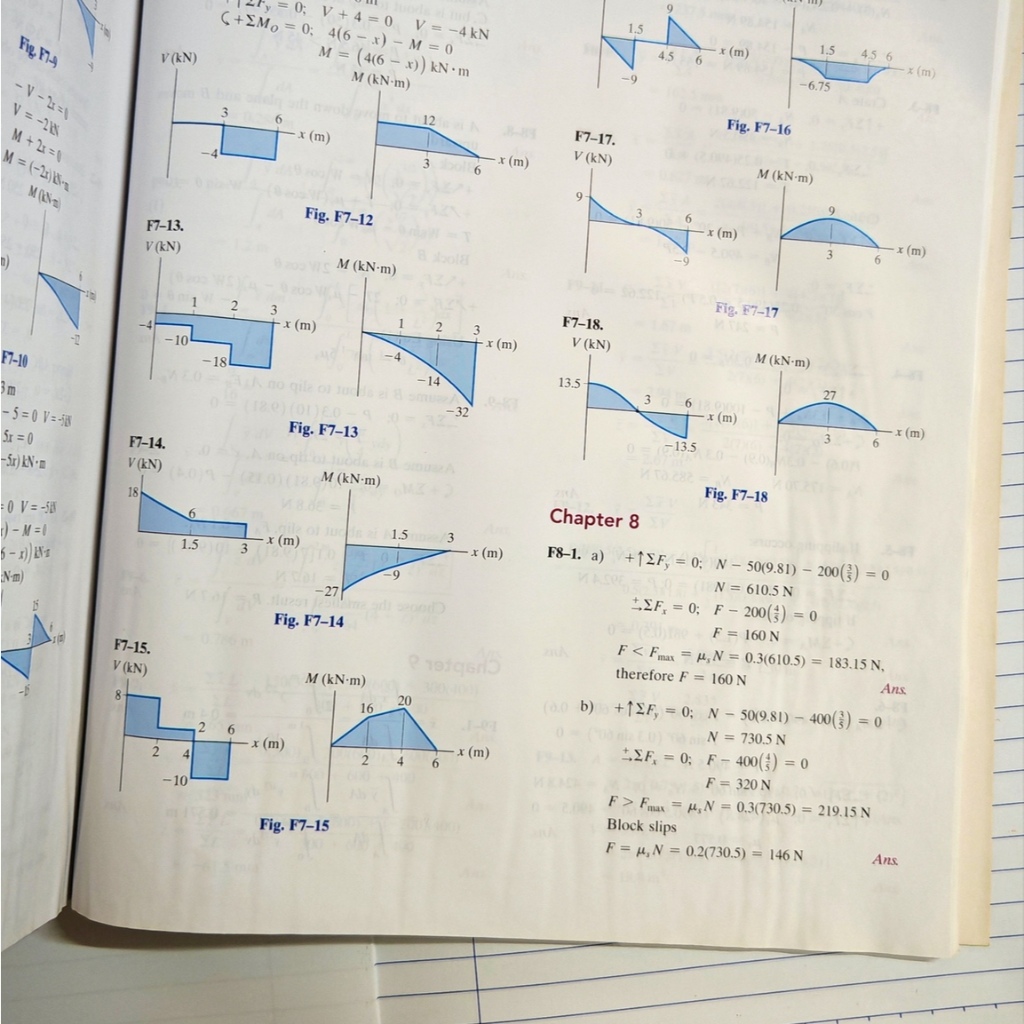 Fig. F7–9
– V – 2x = 0
V = –2 kN
M + 2x = 0
M = (–2x) kN·m
M (kN·m)
6
x (m)
–12
F7–10
3 m
– 5 = 0 V = –5 kN
5x = 0
–5x) kN·m
= 0 V = –5 kN
) – M = 0
6 – x)) kN·m
15
3
6
x (m)
–15
ΣFy = 0; V + 4 = 0 V = –4 kN
↺+ΣMO = 0; 4(6 – x) – M = 0
M = (4(6 – x)) kN·m
V (kN)
3
6
x (m)
–4
M (kN·m)
12
3
6
x (m)
Fig. F7–12
F7–13.
V (kN)
1
2
3
x (m)
–4
–10
–18
M (kN·m)
1
2
3
x (m)
–4
–14
–32
Fig. F7–13
F7–14.
V (kN)
18
6
1.5
3
x (m)
M (kN·m)
1.5
3
x (m)
–9
–27
Fig. F7–14
F7–15.
V (kN)
8
2
2
4
6
x (m)
–10
M (kN·m)
16
20
2
4
6
x (m)
Fig. F7–15
9
1.5
4.5
6
x (m)
–9
1.5
4.5
6
x (m)
–6.75
Fig. F7–16
F7–17.
V (kN)
9
3
6
x (m)
–9
M (kN·m)
9
3
6
x (m)
Fig. F7–17
F7–18.
V (kN)
13.5
3
6
x (m)
–13.5
M (kN·m)
27
3
6
x (m)
Fig. F7–18
Chapter 8
F8–1. a) +↑ΣFy = 0; N – 50(9.81) – 200(3/5) = 0
N = 610.5 N
→+ ΣFx = 0; F – 200(4/5) = 0
F = 160 N
F < Fmax = μsN = 0.3(610.5) = 183.15 N,
therefore F = 160 N Ans.
b) +↑ΣFy = 0; N – 50(9.81) – 400(3/5) = 0
N = 730.5 N
→+ ΣFx = 0; F – 400(4/5) = 0
F = 320 N
F > Fmax = μsN = 0.3(730.5) = 219.15 N
Block slips
F = μsN = 0.2(730.5) = 146 N Ans.